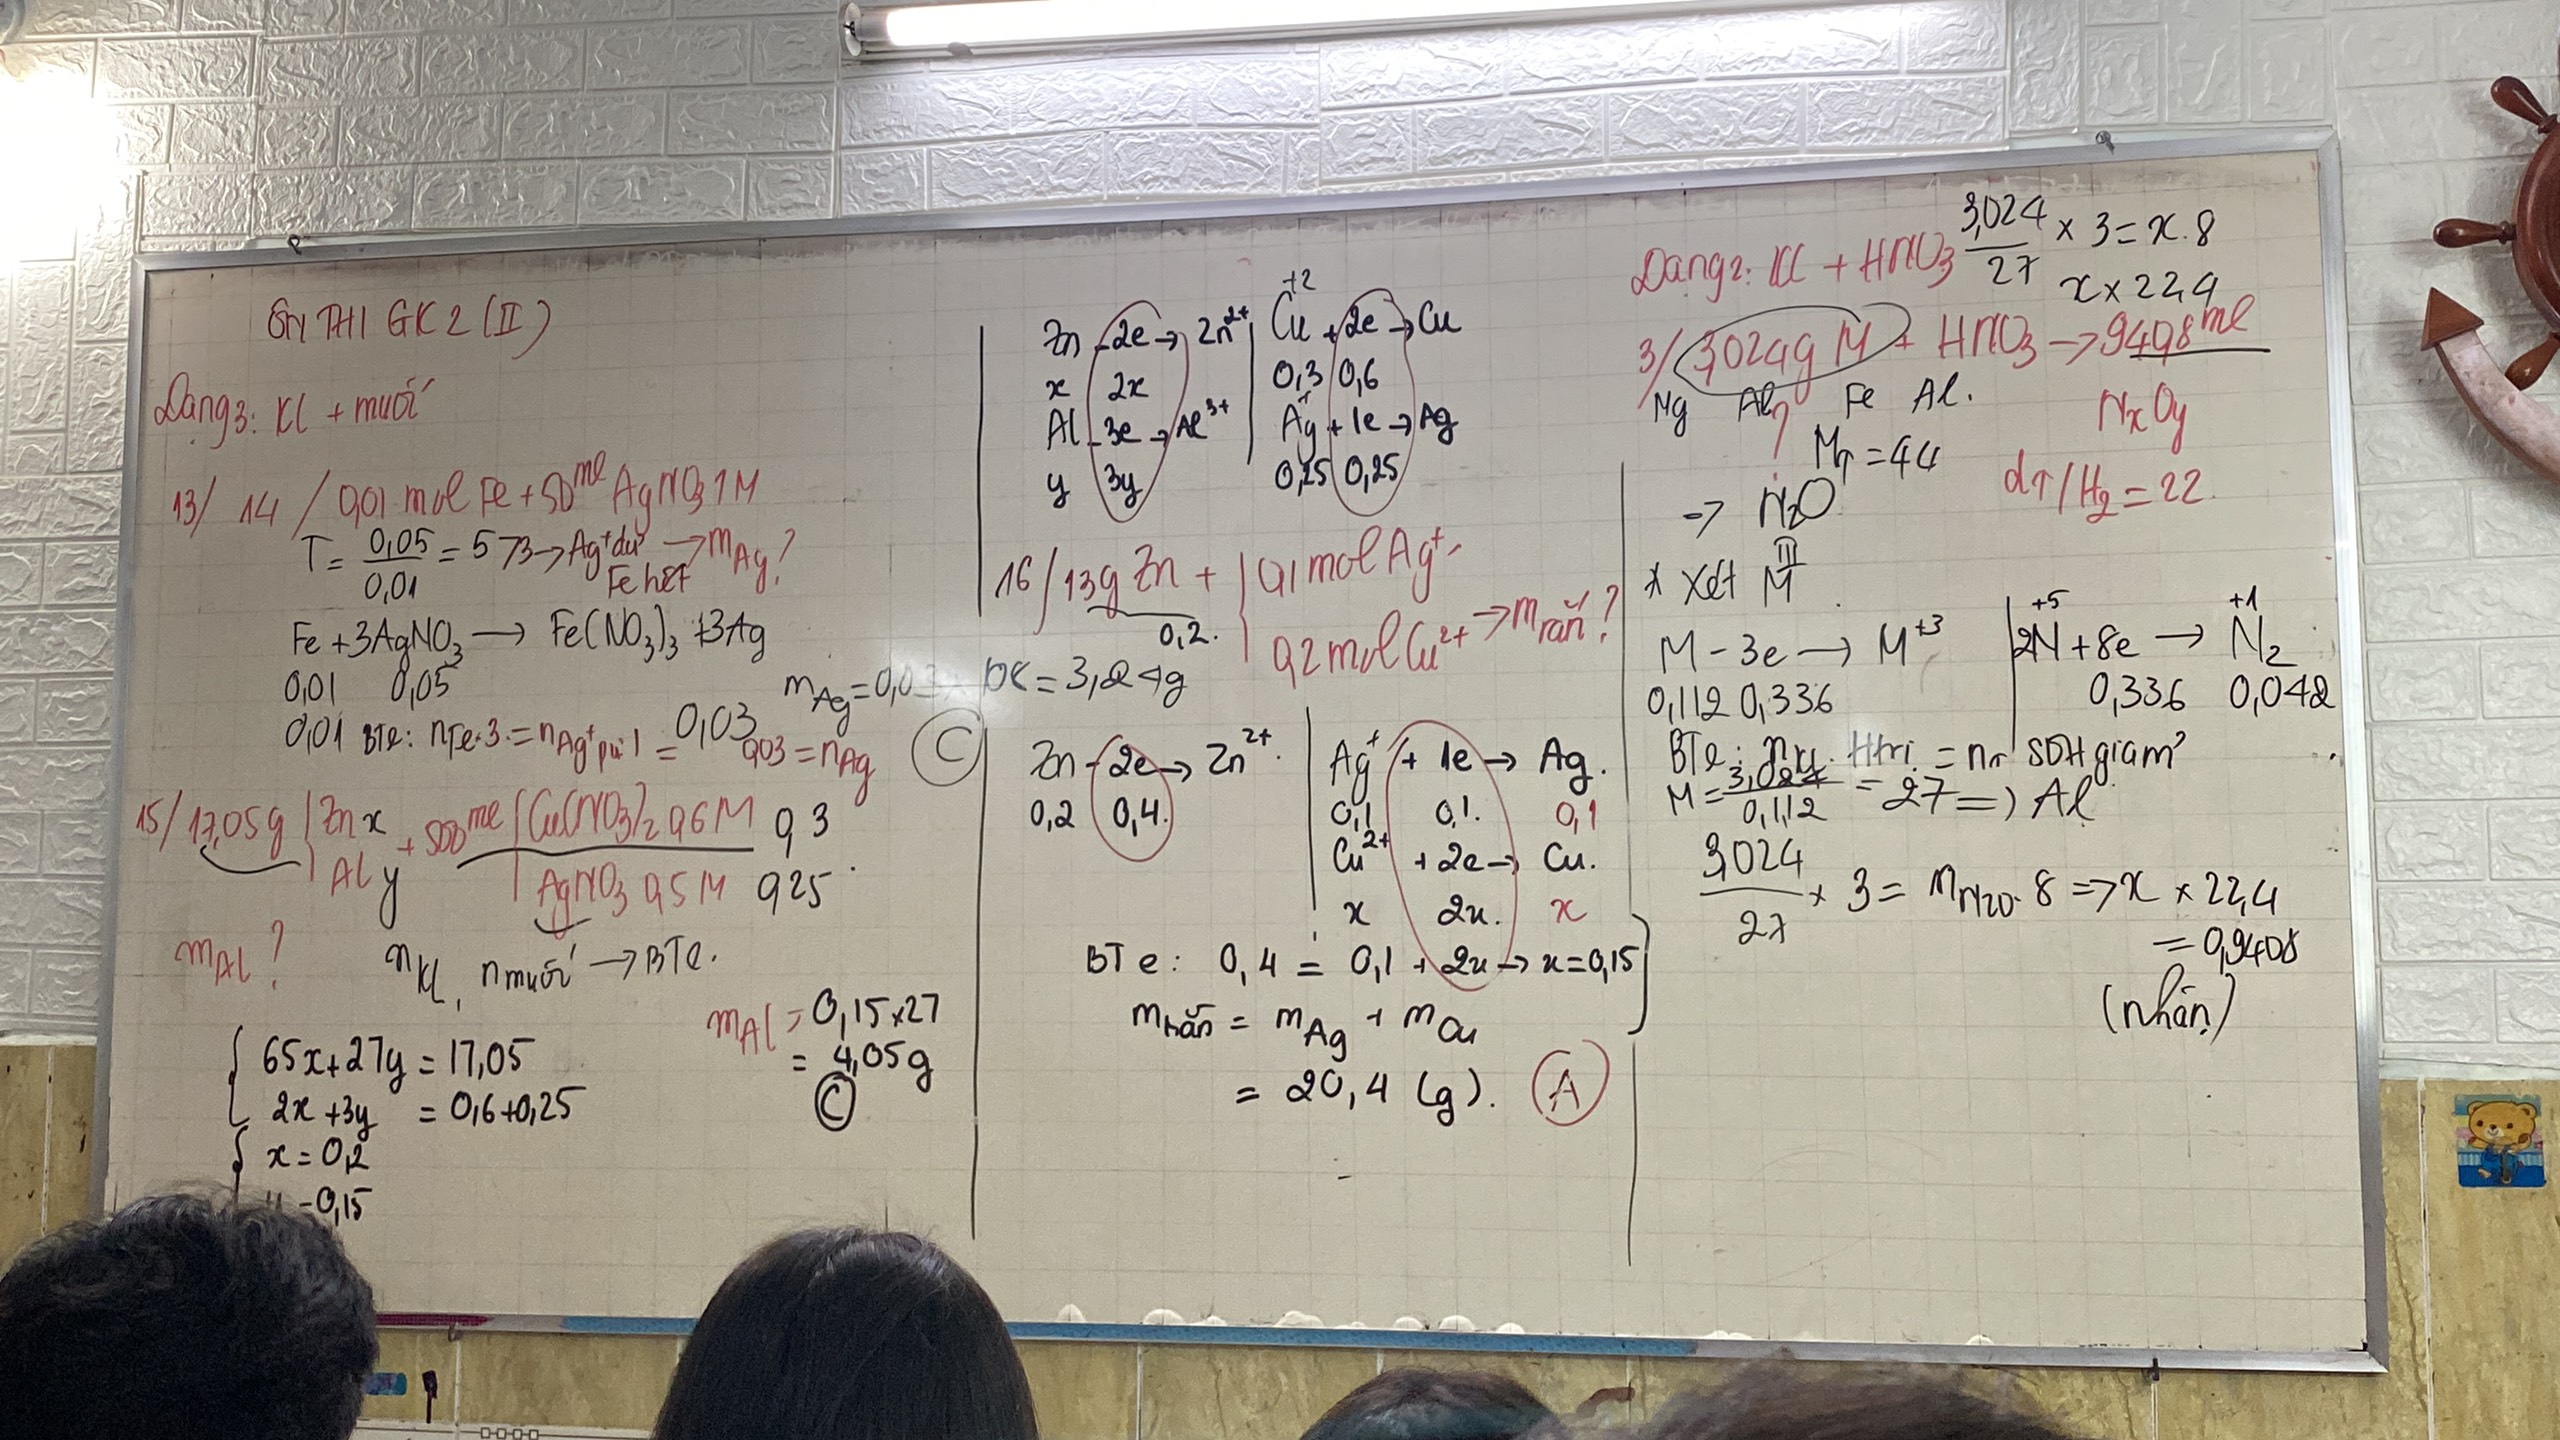 ÔN THI GK2 (II)
Dạng 3: KL + muối
13/ 14 / 0,01 mol Fe + 50ml AgNO3 1M
T = 0,05/0,01 = 5 >3 → Ag+ dư → mAg?
Fe hết
Fe + 3AgNO3 → Fe(NO3)3 + 3Ag
0,01 0,05
0,01 BTe: nFe.3 = nAg+ pư.1 = 0,03
0,03 = nAg
mAg = 0,03 = 3,24g
C
15/ 17,05g Zn x + 500ml Cu(NO3)2 0,6M 0,3
Al y AgNO3 0,5M 0,25
mAl?
nKL, nmuối → BTe.
65x + 27y = 17,05
2x + 3y = 0,6 + 0,25
x = 0,2
= 0,15
mAl = 0,15 x 27
= 4,05g
C
Zn - 2e → Zn2+
x 2x
Al - 3e → Al3+
y 3y
+2
Cu + 2e → Cu
0,3 0,6
Ag+ + 1e → Ag
0,25 0,25
16 / 13g Zn + 0,1 mol Ag+
0,2. 0,2 mol Cu2+ → mrắn?
Zn - 2e → Zn2+
0,2 0,4
Ag+ + 1e → Ag.
0,1 0,1. 0,1
Cu2+ + 2e → Cu.
x 2x. x
BTe: 0,4 = 0,1 + 2x → x = 0,15
mrắn = mAg + mCu
= 20,4 (g).
A
Dạng 2: KL + HNO3
3,024/27 x 3 = x.8
x x 22,4
3/ 3,024g M + HNO3 → 940,8ml
Mg Al Fe Al.
?
NxOy
M↑ = 44
d↑/H2 = 22
→ N2O
* Xét M III
M - 3e → M+3
0,112 0,336
+5 +1
2N + 8e → N2
0,336 0,042
BTe: nKL. Htrị = n↑ SOH giảm
M = 3,024/0,112 = 27 => Al
3,024/27 x 3 = nN2O.8 => x x 22,4
= 0,9408
(nhận)